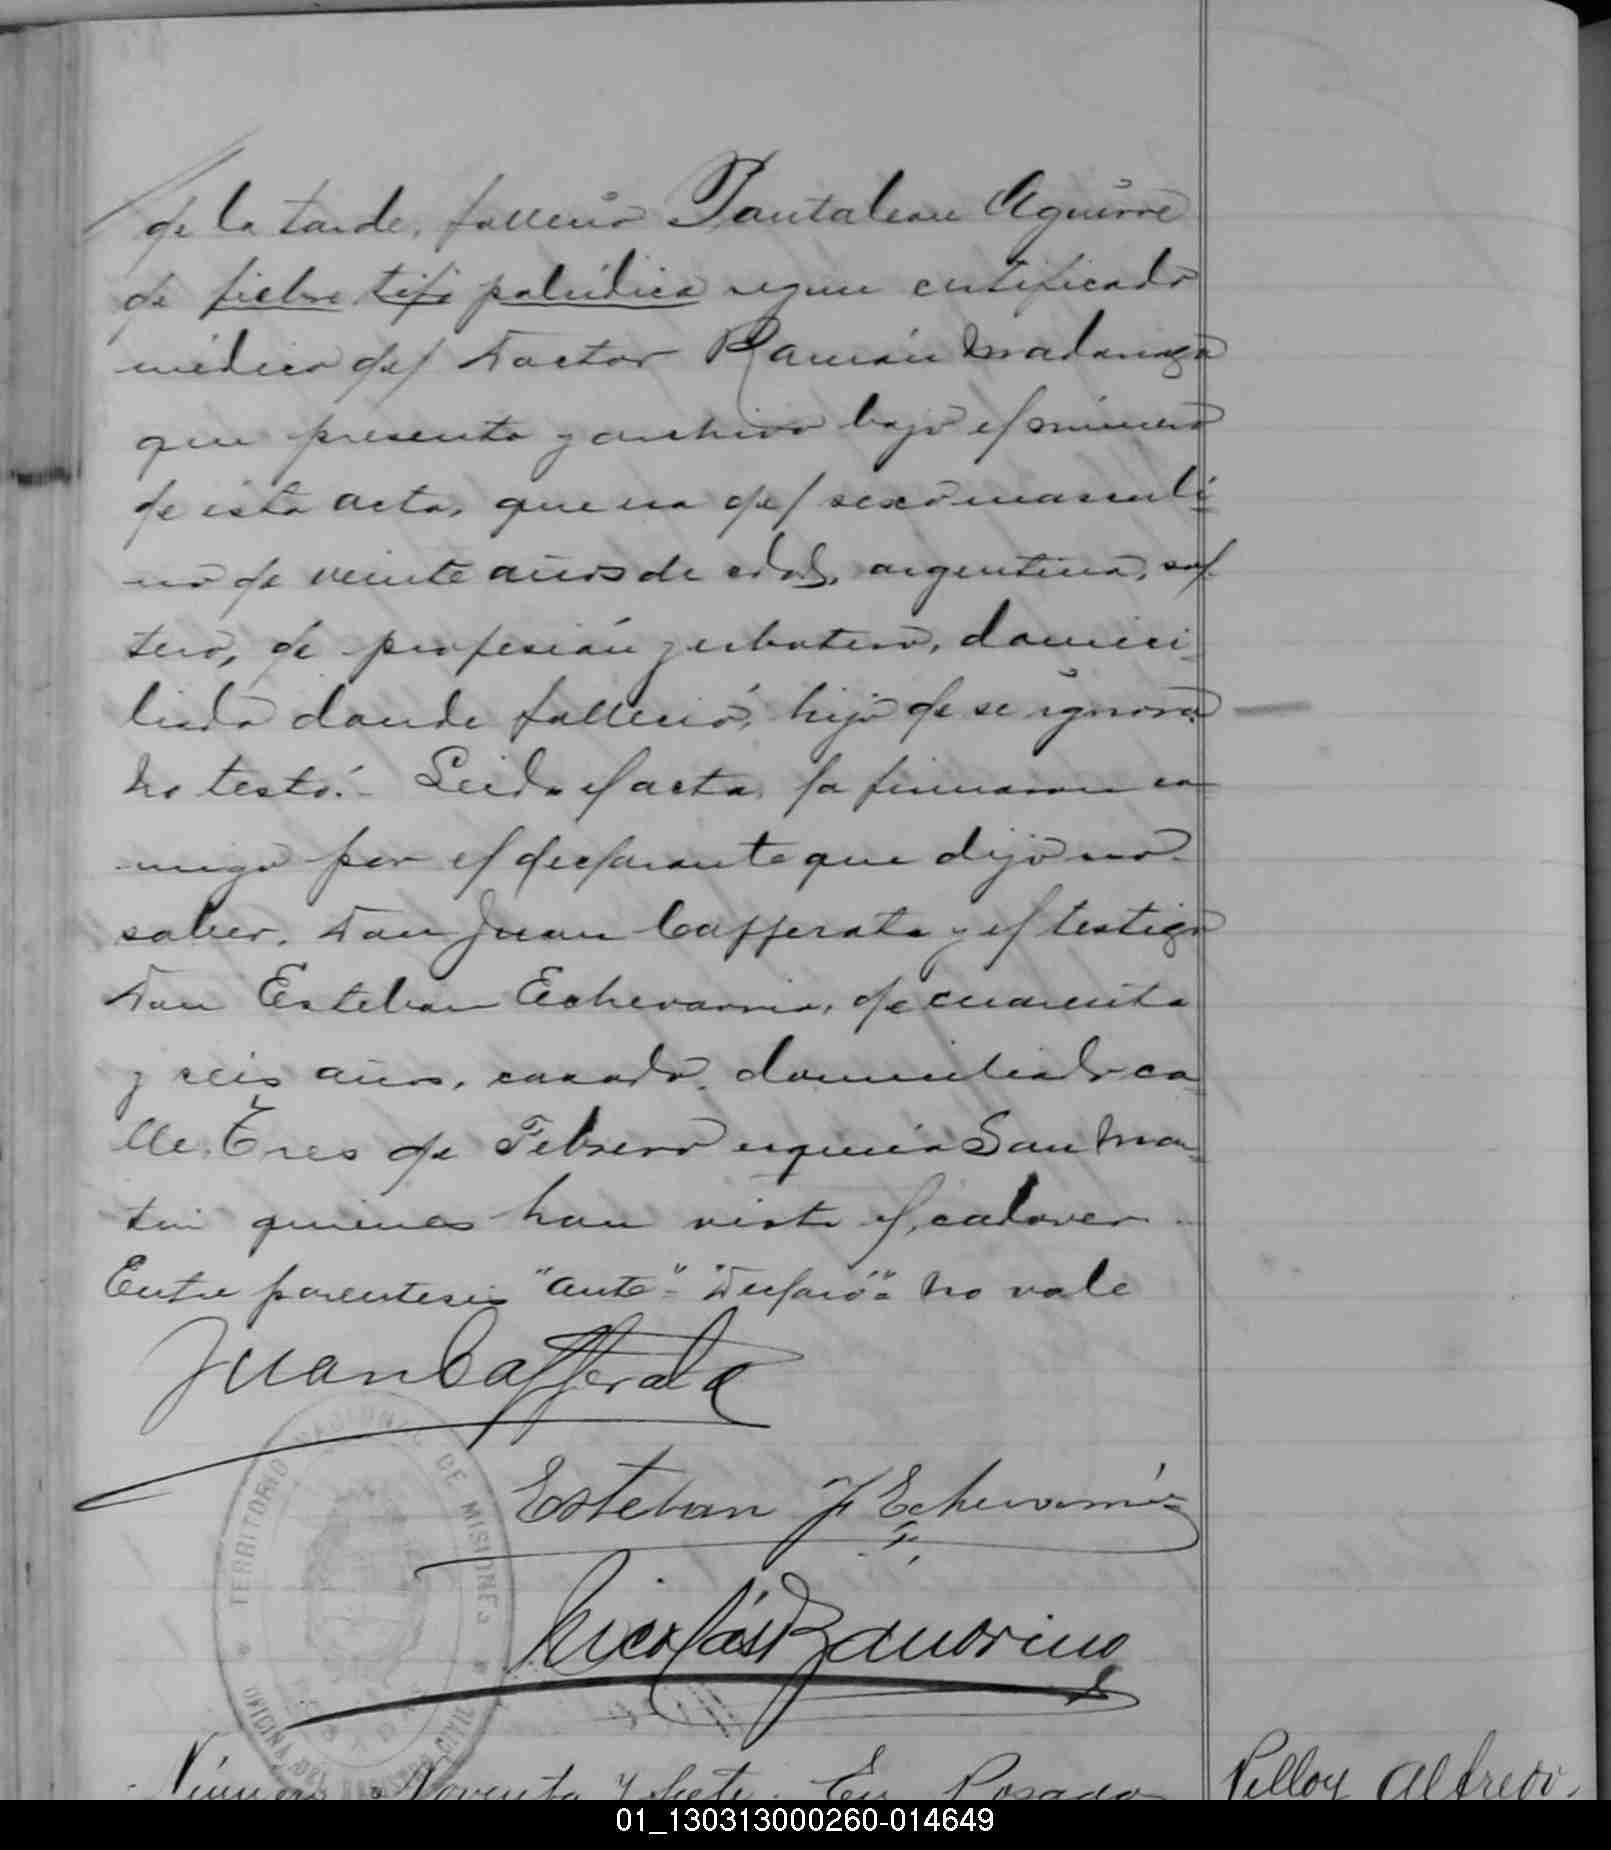 de la tarde, falleció Pantaleon Aguirre
de fiebre tifo palúdica segun certificado
médico del Doctor Ramón Madariaga
que presenta y archivo bajo el número
de esta acta, que era del sexo masculi=
no de veinte años de edad, argentino, sol
tero, de profesión yerbatero, domici
liado donde falleció, hijo de se ignora
No testó.- Leida el acta, la firmaron co
migo por el declarante que dijo no
saber, Don Juan Cafferata y el testigo
Don Esteban Echevarria, de cuarenta
y seis años, casado, domiciliado ca
lle Tres de Febrero esquina San Mar=
tin quienes han visto el cadaver
Entre parentesis "ante"- "Declaró"= No vale
Juan Cafferata
Esteban F Echevarria
Nicolás
TERRITORIO NACIONAL DE MISIONES
OFICINA DEL REGISTRO CIVIL
POSADAS
Número Noventa y Siete. En Posada
Pelloy Alfredo.
01_130313000260-014649